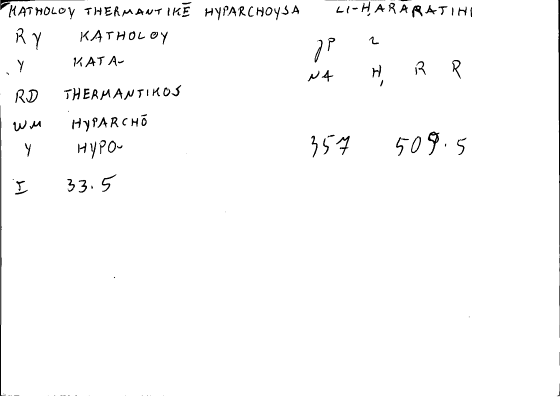 KATHOLOY THERMANTIKĒ HYPARCHOYSA LI-ḤARĀRATIHI
RY KATHOLOY
Y KATA-
RD THERMANTIKOS
WM HYPARCHŌ
Y HYPO-
I 33.5
JP 2
NA Ḥ R R
357 509.5